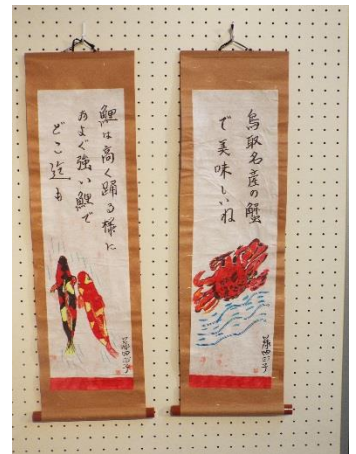 鳥取名産の蟹
で美味しいね
鯉は高く踊る様に
およぐ強い鯉で
どこ迄も